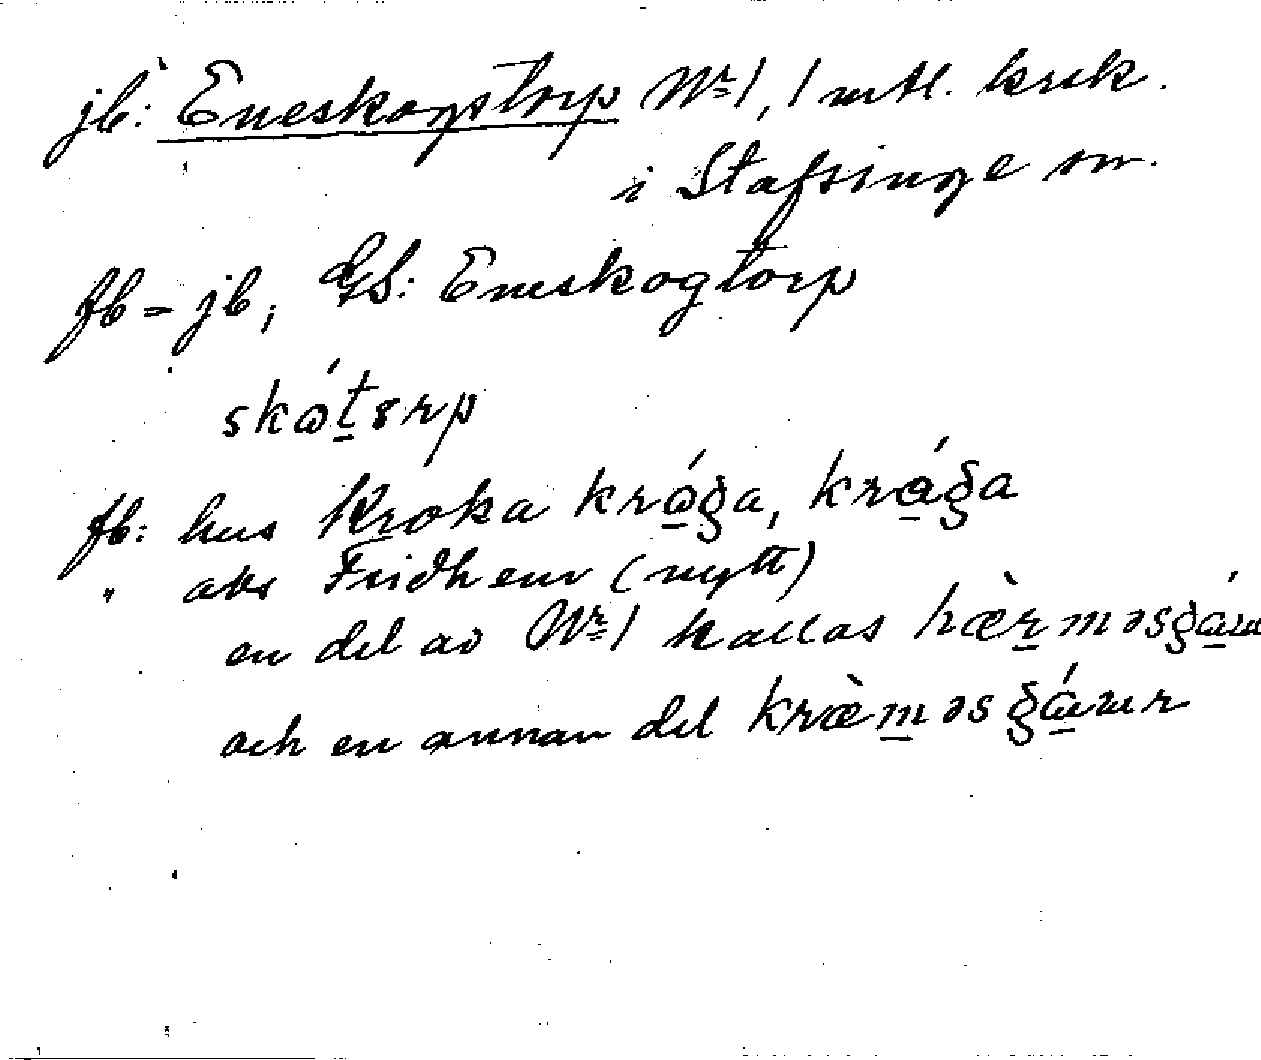 jb: Eneskogstorp Nr 1, 1 mtl. krsk.
i Stafsinge sn.
fb = jb; GS: Eneskogtorp
skɷ́tsrp
fb: hus Kroka krɷ́ǥa, krɑ́ǥa
" avs Fridhem (nytt)
en del av Nr 1 kallas hæ̀rməsǥɑ́ɯ
och en annan del kræ̀məsǥɑ́ɯr